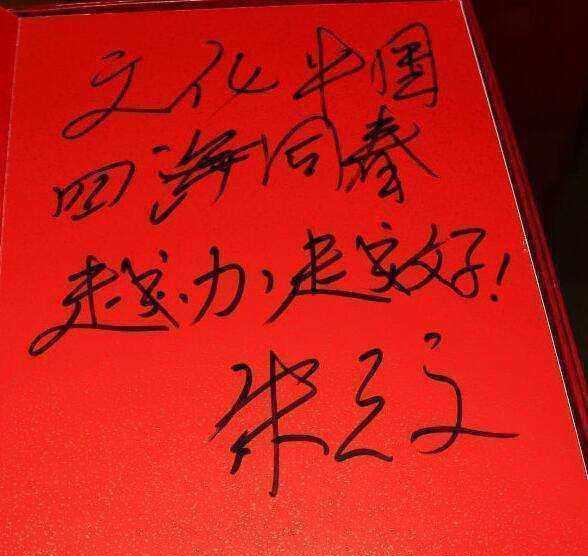 文化中国
四海同春
越办越好!
朱立文